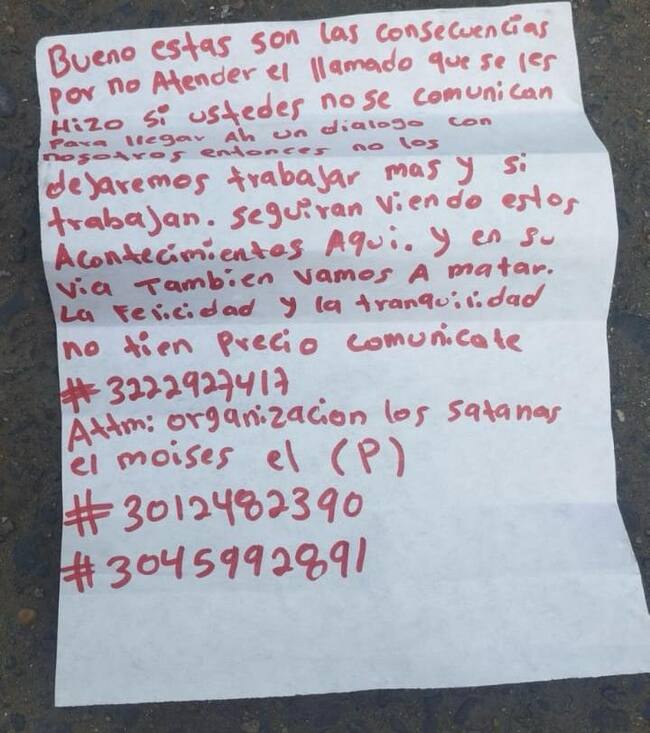 Bueno estas son las consecuencias
por no Atender el llamado que se les
Hizo si ustedes no se comunican
para llegar Ah un dialogo con
nosotros entonces no los
dejaremos trabajar mas y si
trabajan. seguiran viendo estos
Acontecimientos Aqui. y en su
via Tambien vamos A matar.
La Felicidad y la tranquilidad
no tien precio comunicate
# 3222927417
Attm: organizacion los satanas
el moises el (P)
# 3012482390
# 3045992891